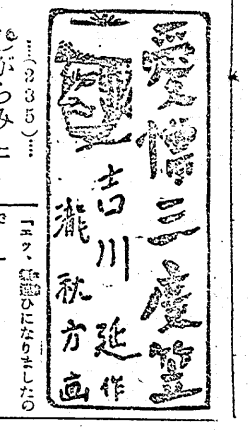 愛憎三度笠
吉川延作
瀧秋方画
…(235)…
「エッ、ひになりましたの